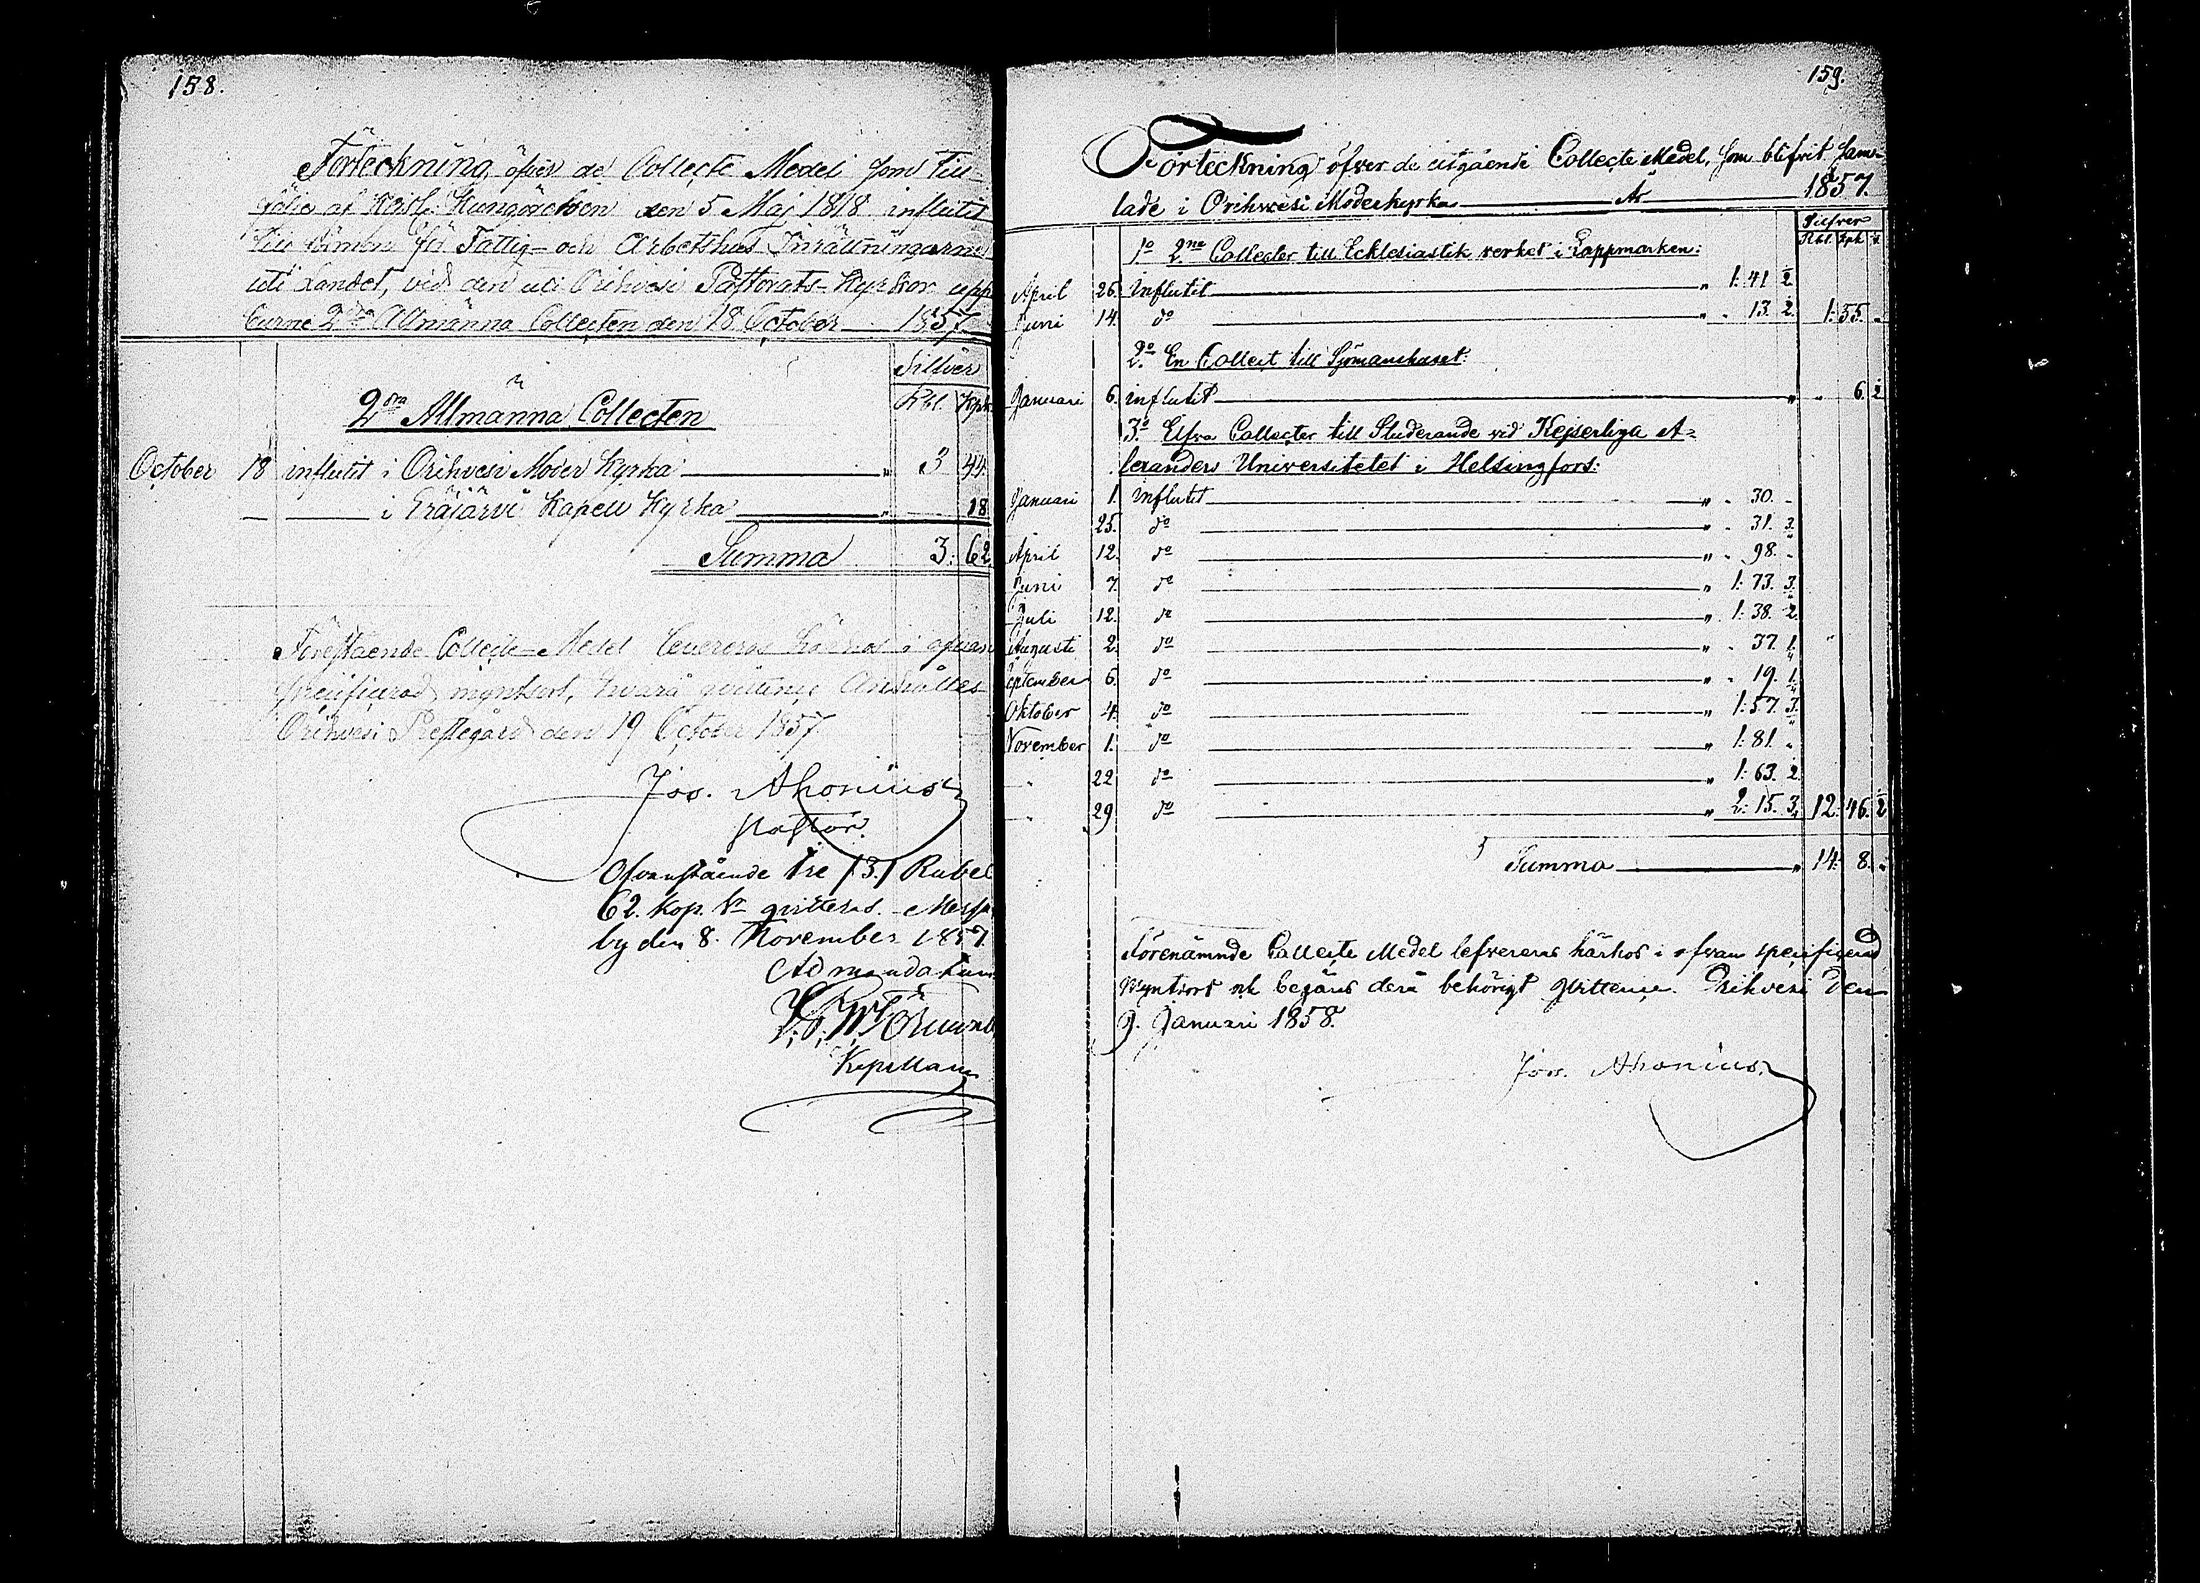 158.
Förteckning öfver de Collecte Medel som till
följe af Keisl. Kungörelsen den 5 Maj 1818 influtit
till förmån för Fattig- och Arbetshus Inrättningarne
uti Landet, vid den uti Orihvesi Pastorats Kyrkor upp
burne 2dra Allmänna Collecten den 18 October 1857
Silfver
2dra Allmänna Collecten Rbl. Kpk
October 18 influtit i Orihvesi Moder Kyrka " 3 44
— — i Eräjärvi Kapell Kyrka " 18
Summa 3: 62
Förestående Collecte Medel levereras härhos i ofvan
specificerad myntsort, hvarå quittence anhålles
Orihvesi Prestegård den 19 October 1857
Jos. Ahonius
Pastor.
Ofvanstående tre /3/ Rubel
62. Kop. Sr qvitteras. Messu
by den 8. November 1857.
Ad mandatum
Kapellan
159.
Förteckning öfver de utgående Collecte Medel, som blifvit sam-
lade i Orihvesi Moderkyrka År 1857.
Silfver
Rbl. Kpk
1o 2ne Collecter till Ecklesiastik verket i Lappmarken:
April 26. influtit " 1: 41 ½
Juni 14. do " . 13. ½ 1: 55. "
2o. En Collect till Sjömanshuset:
Januari 6. influtit " . 6. ½
3o. Elfva Collecter till Studerande vid Kejserliga A=
lexanders Universitetet i Helsingfors:
Januari 1. influtit " . 30. -
25. do " . 31. ¾
April 12. do " . 98. -
Juni 7. do " 1: 73. ¾
Juli 12. do " 1: 38. ½
Augusti 2. do " . 37. ¼
September 6. do " . 19. ¼
Oktober 4. do " 1: 57. ¾
November 1. do " 1: 81. "
" 22 do " 1: 63. ½
" 29 do " 2: 15. ¾ 12: 46. ½
Summa " 14: 8. "
Förenämnde Collecte Medel lefvereras härhos i ofvan specificerad
Myntsort och begäres derå behörigt qvittence. Orihvesi den
9. Januari 1858.
Jos. Ahonius.